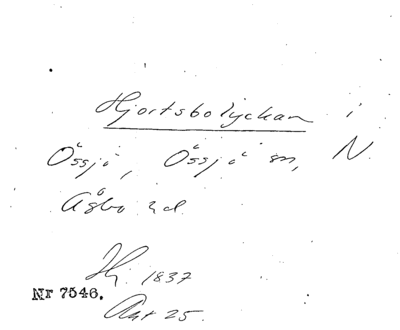 Hjortsbolyckan i
Össjö, Össjö sn, N.
Åsbo hd.
Hj. 1837
Nr 7546.
Akt 25.